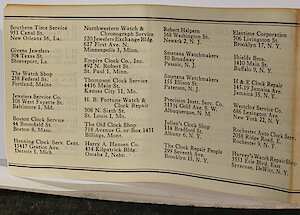 Southern Time Service
931 Canal St.
New Orleans 16, La.
Givens Jewelers
504 Texas St.
Shreveport, La.
The Watch Shop
218 Federal St.
Portland, Maine
Jewelers Service Co.
108 West Fayette St.
Baltimore 1, Md.
Boston Clock Service
44 Bromfield St.
Boston 8, Mass.
Henning Clock Serv. Cent.
13417 Gratiot Ave.
Detroit 5, Mich.
Northwestern Watch &
Chronograph Service
520 Jewelers Exchange Bldg.
627 First Ave. N.
Minneapolis 3, Minn.
Empire Clock Co., Inc.
492 N. Robert St.
St. Paul 1, Minn.
Thompson Clock Service
4416 Main St.
Kansas City 11, Mo.
H. B. Fortune Watch &
Clock Repair
308 N. Sixth St.
St. Louis 1, Mo.
The Old Clock Shop
718 Avenue G. or Box 1451
Billings, Mont.
Harry A. Hansen Co.
434 Kilpatrick Bldg.
Omaha 2, Nebr.
Robert Halpern
Washington St.
Newark 2, N. J.
Smetana Watchmakers
50 Broadway
Passaic, N. J.
Smetana Watchmakers
Precision Instr. Serv. Co.
Gold Ave. S W
Albuquerque, N. M.
Julien's Clock Shop
114 Bradford St.
Albany 6, N. Y.
The Clock Repair People
299 Seventh Ave.
Brooklyn 15, N. Y.
Electime Corporation
306 Livingston St.
Brooklyn 17, N. Y.
Shields Bros.
1410 Main St.
Buffalo 9, N. Y.
H & E Clock Repair
Jamaica
Jamaica 35, N. Y.
Wentzler Service Co.
660 Lexington Ave.
New York 22, N. Y.
Rochester Instr. Clock Serv.
Ridge Rd.
Rochester 9, N. Y.
Harvey's Watch Repair Shop
Erie Blvd. East
Syracuse, DeWitt, N. Y.